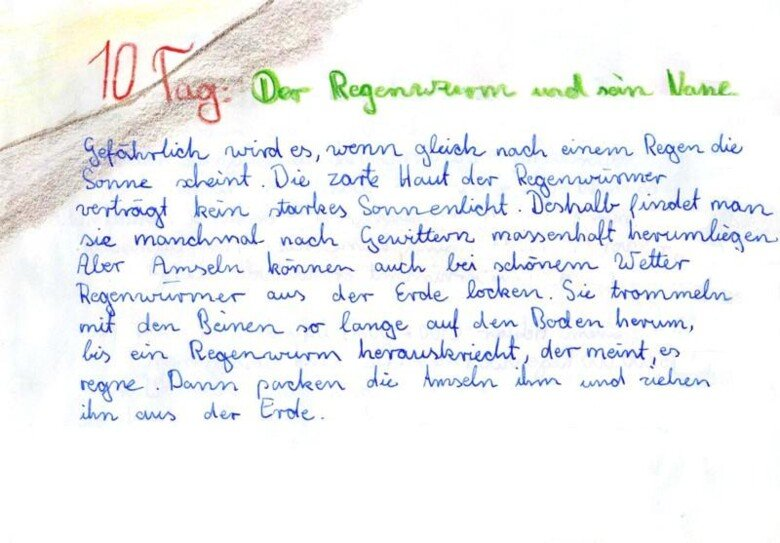 10 Tag: Der Regenwurm und sein Name
Gefährlich wird es, wenn gleich nach einem Regen die
Sonne scheint. Die zarte Haut der Regenwürmer
verträgt kein starkes Sonnenlicht. Deshalb findet man
sie manchmal nach Gewittern massenhaft herumliegen
Aber Amseln können auch bei schönem Wetter
Regenwürmer aus der Erde locken. Sie trommeln
mit den Beinen so lange auf den Boden herum,
bis ein Regenwurm herauskriecht, der meint, es
regne. Dann packen die Amseln ihm und ziehen
ihn aus der Erde.